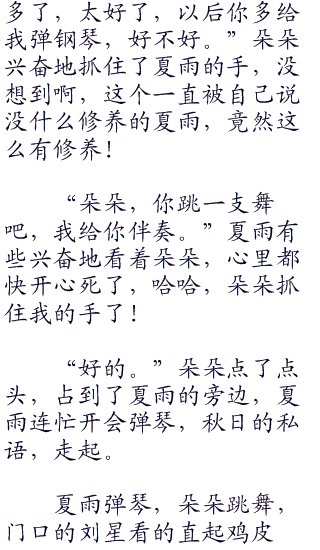 多了，太好了，以后你多给
我弹钢琴，好不好。”朵朵
兴奋地抓住了夏雨的手，没
想到啊，这个一直被自己说
没什么修养的夏雨，竟然这
么有修养！
“朵朵，你跳一支舞
吧，我给你伴奏。”夏雨有
些兴奋地看着朵朵，心里都
快开心死了，哈哈，朵朵抓
住我的手了！
“好的。”朵朵点了点
头，占到了夏雨的旁边，夏
雨连忙开会弹琴，秋日的私
语，走起。
夏雨弹琴，朵朵跳舞，
门口的刘星看的直起鸡皮